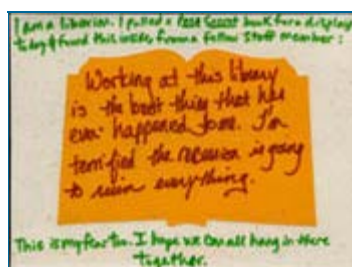 I am a librarian. I pulled a Post Secret book for a display
today & found this inside, from a fellow staff member:
Working at this library
is the best thing that has
ever happened to me. I'm
terrified the recession is going
to ruin everything.
This is my fear too. I hope we can all hang in there
together.